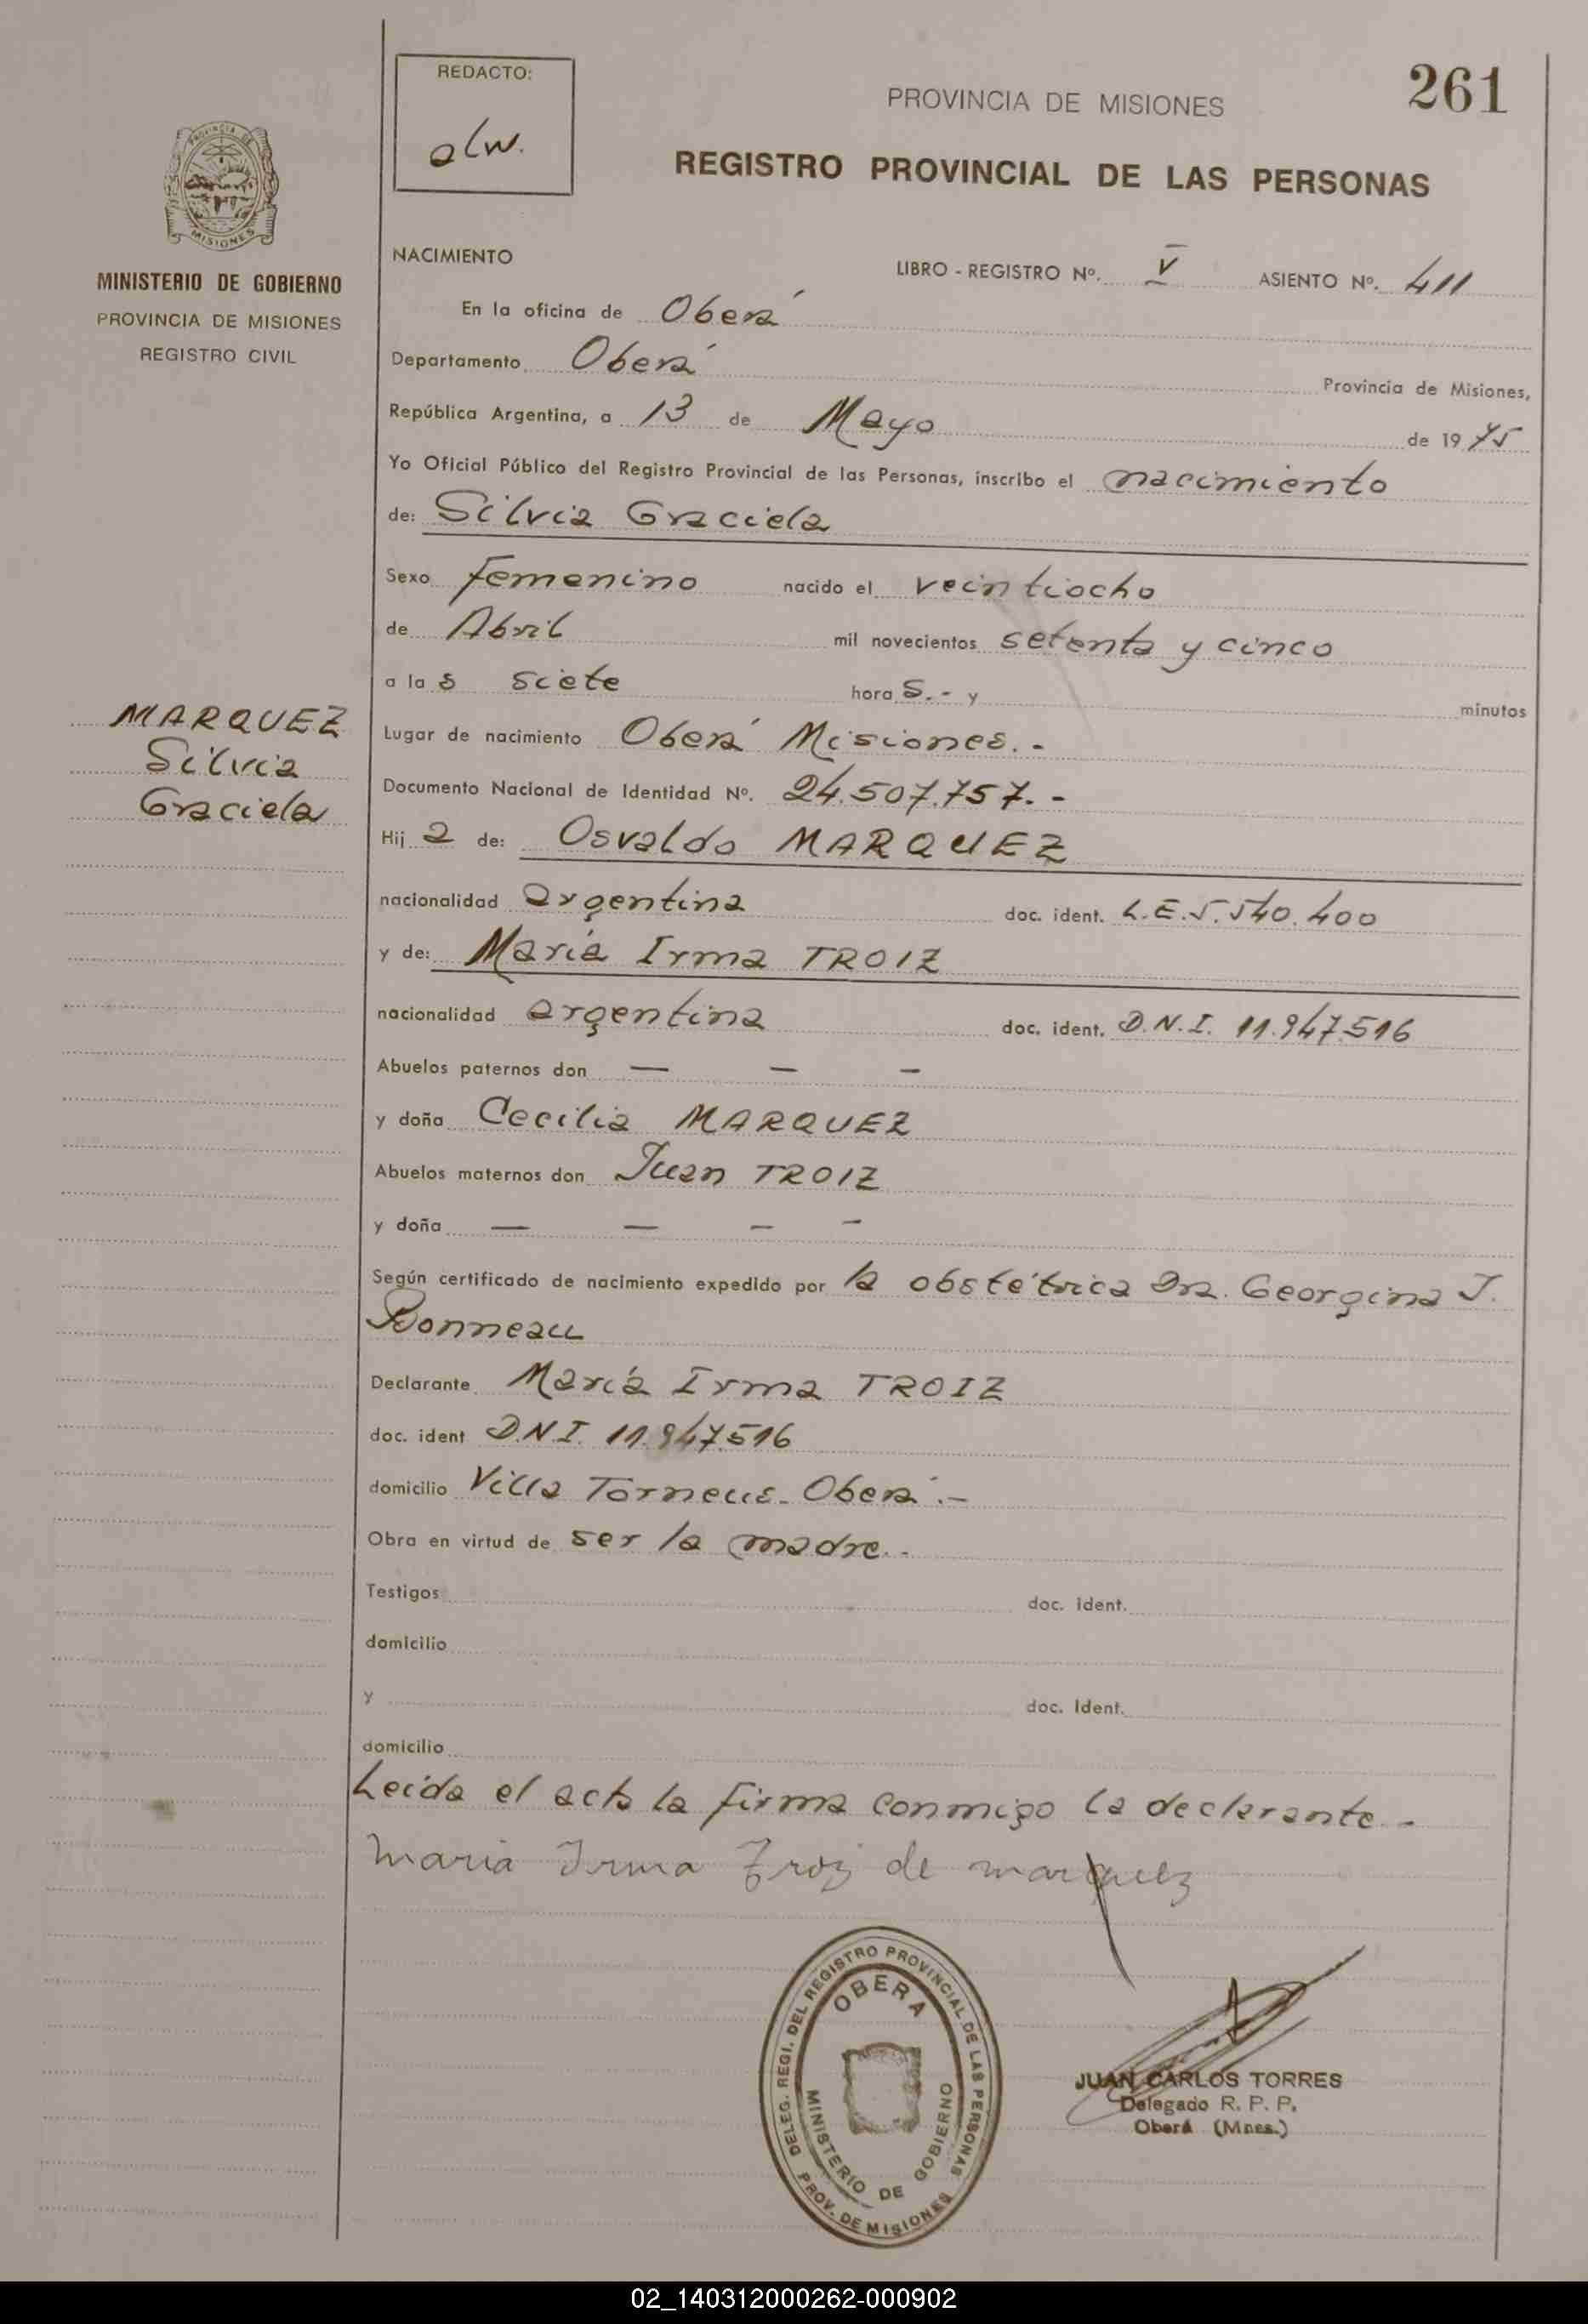 REDACTO:
alw.
PROVINCIA DE MISIONES
261
REGISTRO PROVINCIAL DE LAS PERSONAS
PROVINCIA DE
MISIONES
MINISTERIO DE GOBIERNO
PROVINCIA DE MISIONES
REGISTRO CIVIL
NACIMIENTO
LIBRO - REGISTRO Nº. V ASIENTO Nº. 411
En la oficina de Oberá
Departamento Oberá Provincia de Misiones,
República Argentina, a 13 de Mayo de 1975
Yo Oficial Público del Registro Provincial de las Personas, inscribo el nacimiento
de: Silvia Graciela
Sexo femenino nacido el veintiocho
de Abril mil novecientos setenta y cinco
a las siete horas.- y minutos
MARQUEZ
Silvia
Graciela
Lugar de nacimiento Oberá Misiones.-
Documento Nacional de Identidad Nº. 24.507.757.-
Hija de: Osvaldo MARQUEZ
nacionalidad argentina doc. ident. L.E. 5.540.400
y de: María Irma TROIZ
nacionalidad argentina doc. ident. D.N.I. 11.947.516
Abuelos paternos don — — —
y doña Cecilia MARQUEZ
Abuelos maternos don Juan TROIZ
y doña — — — —
Según certificado de nacimiento expedido por la obstétrica Dra. Georgina J.
Bonneau
Declarante María Irma TROIZ
doc. ident D.N.I. 11.947.516
domicilio Villa Torneus. Oberá.-
Obra en virtud de ser la madre.-
Testigos doc. ident.
domicilio
y doc. Ident.
domicilio
Leida el acta la firma conmigo la declarante.-
Maria Irma Troiz de Marquez
DELEG. REGI. DEL REGISTRO PROVINCIAL DE LAS PERSONAS
PROV. DE MISIONES
OBERA
MINISTERIO DE GOBIERNO
JUAN CARLOS TORRES
Delegado R. P. P.
Oberá (Mnes.)
02_140312000262-000902